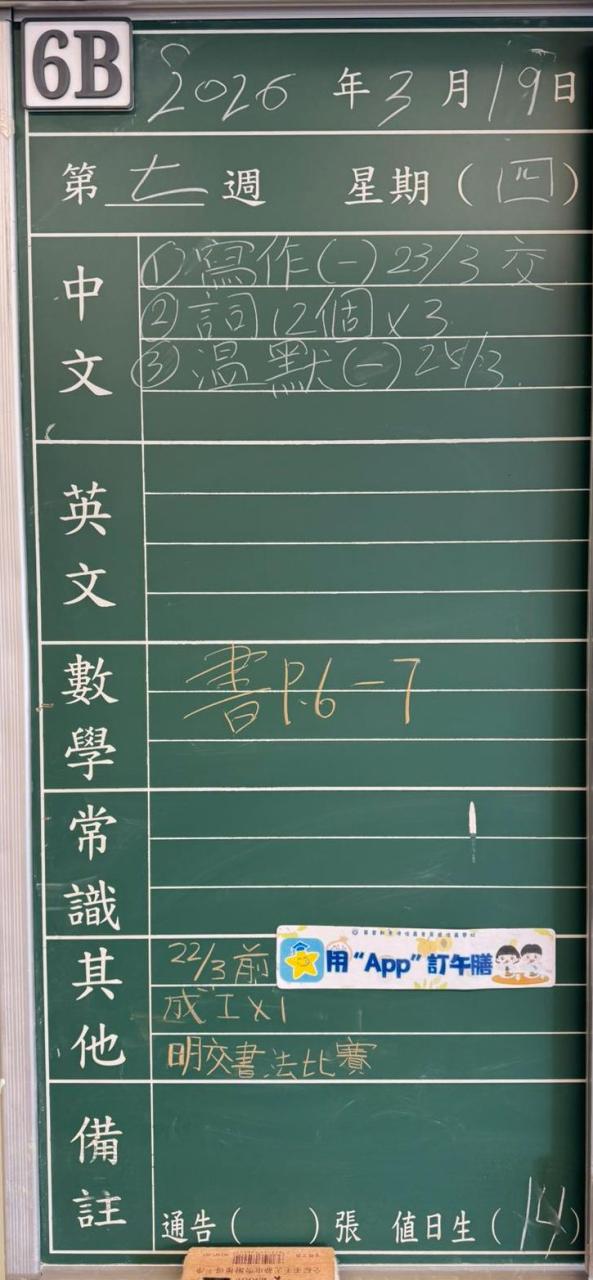 6B
2026 年 3 月 19 日
第 七 週 星期 ( 四 )
中文
① 寫作(一) 23/3 交
② 詞 12個 x 3
③ 温 默(一) 25/3.
英文
數學
書 P.6-7
常識
其他
22/3 前 用“App”訂午膳
成工 x 1
明交書法比賽
備註
通告 ( ) 張 值日生 ( 14 )